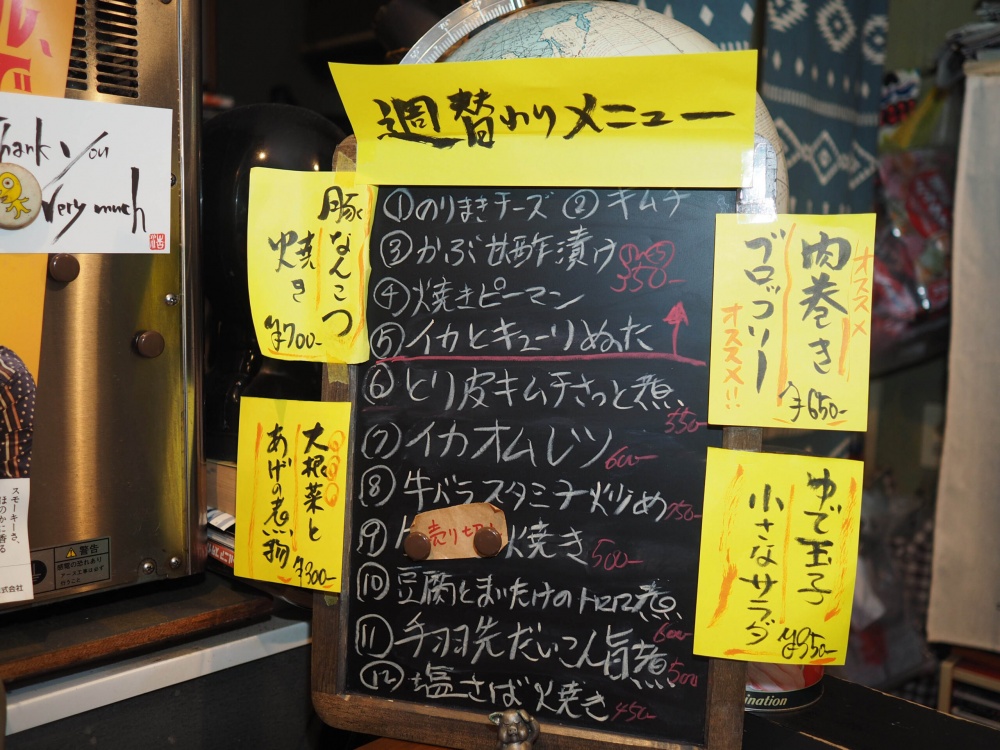 週替わりメニュー
①のりまきチーズ ②キムチ
③かぶ甘酢漬け
350-
④焼きピーマン
⑤イカとキューリぬた
⑥とり皮キムチさっと煮
550-
⑦イカオムレツ 600-
⑧牛バラスタミナ炒め 750-
⑨ 売り切れ 焼き 500-
⑩豆腐とまいたけのトロロ煮
600-
⑪手羽先だいこん旨煮 500
⑫塩さば焼き 450-
豚なんこつ
焼き
¥700-
大根菜と
あげの煮物
¥300-
オススメ
肉巻き
ブロッコリー
オススメ!!
¥650-
ゆで玉子
小さなサラダ
¥350-
Thank you
Very much
スモーキーさ、
ほのかに香る
株式会社
警告
感電の恐れあり
アース工事は必ず
行うこと
ination